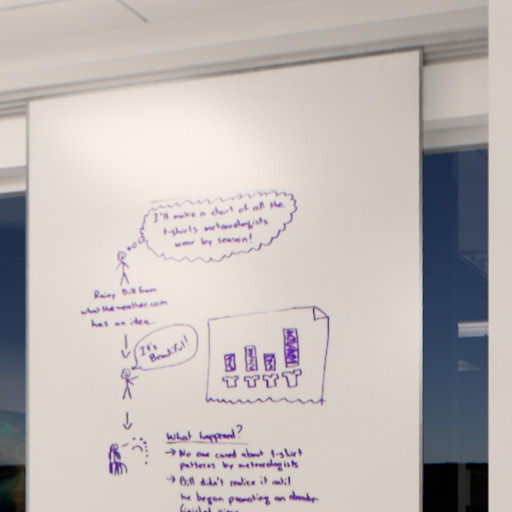 I'll make a chart of all the
t-shirts meteorologists
wear by season!
Rainy Bill from
whattheweather.com
has an idea...
It's
Beautiful!
What happened?
→ No one cared about t-shirt
patterns by meteorologists
→ Bill didn't realize it until
he began promoting an already
finished